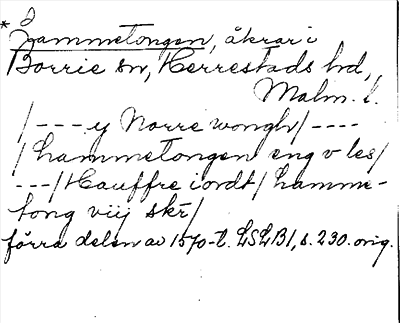 * Hammetongen, åkrar i
Borrie sn, Herrestads hd,
Malm. l.
/---- y Norre wongh/ ----
/ hammetongen eng v les/
---/ Hauffre iordt/ hamme-
tong viij skr/
förra delen av 1570-t. LSLB1, s. 230. orig.